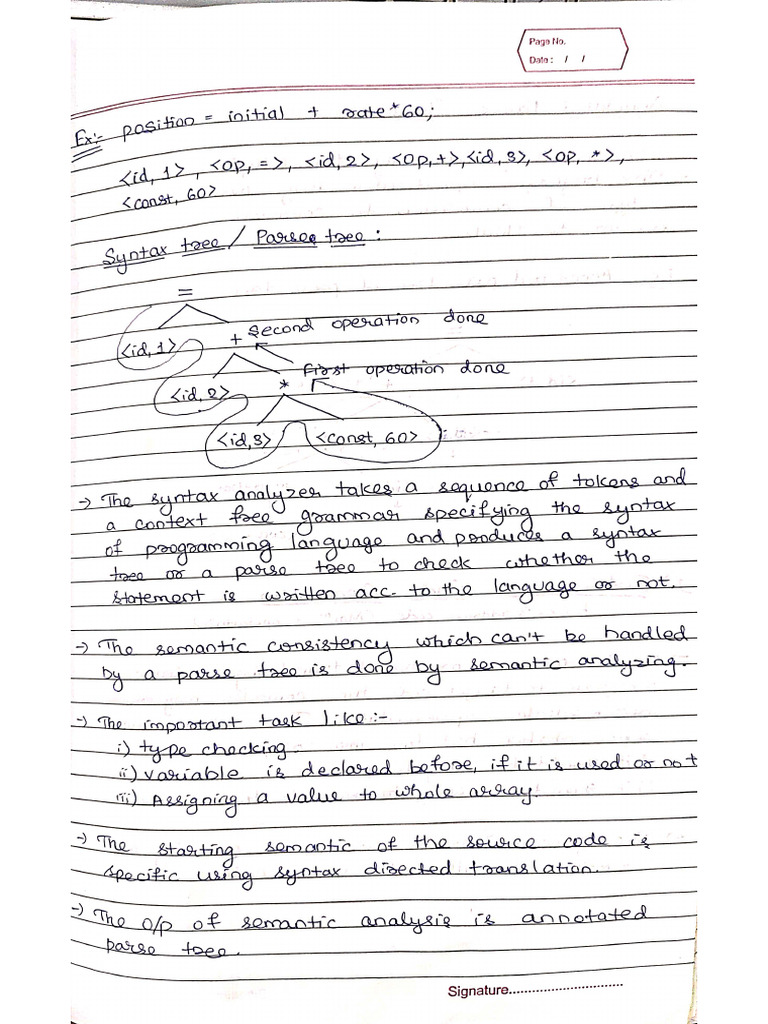 Page No.
Date : / /
Ex:- position = initial + rate * 60;
<id, 1> , <op, =>, <id, 2>, <op, +>, <id, 3>, <op, *>,
<const, 60>
Syntax tree / Parse tree :
=
<id, 1> + Second operation done
<id, 2> * First operation done
<id, 3> <const, 60>
→ The syntax analyzer takes a sequence of tokens and
a context free grammar specifying the syntax
of programming language and produces a syntax
tree or a parse tree to check whether the
statement is written acc. to the language or not.
→ The semantic consistency which can't be handled
by a parse tree is done by semantic analyzing.
→ The important task like :-
i) type checking
ii) variable is declared before, if it is used or not
iii) Assigning a value to whole array.
→ The starting semantic of the source code is
specific using syntax directed translation.
→ The o/p of semantic analysis is annotated
parse tree.
Signature..............................